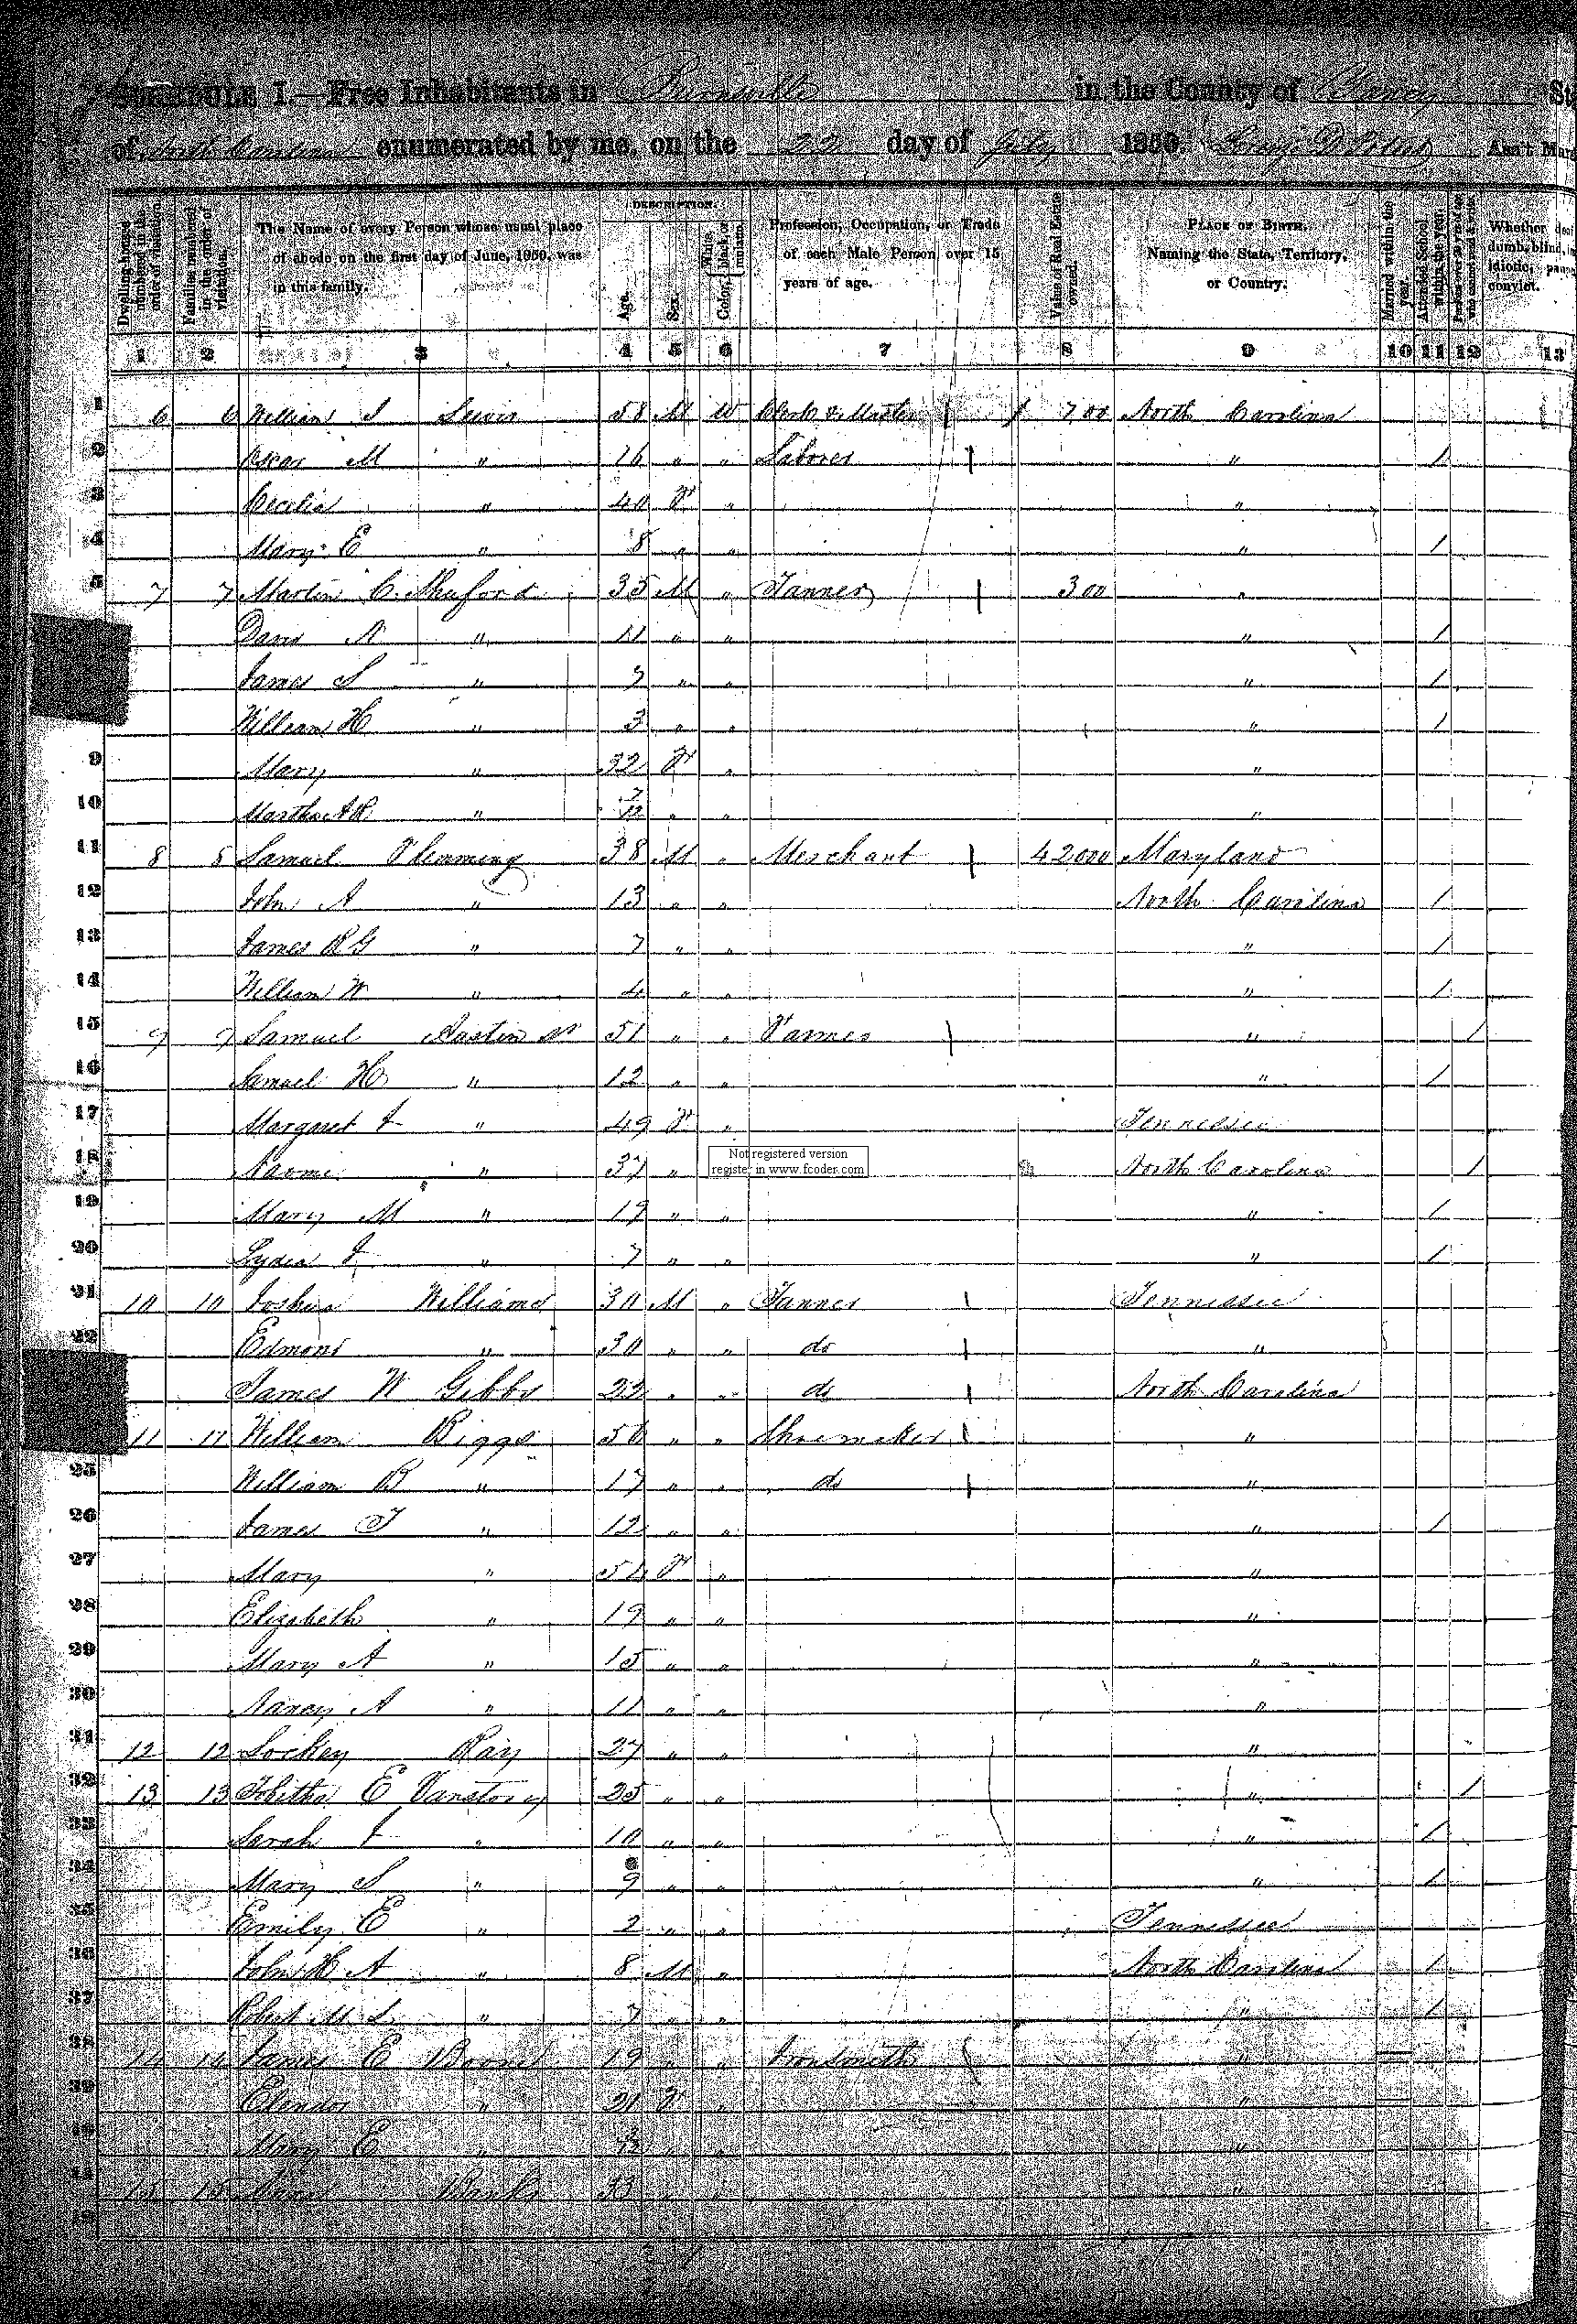 SCHEDULE I.—Free Inhabitants in Burnsville in the County of Yancy St
of North Carolina enumerated by me, on the 22 day of July 1850. Ass't Mars
Dwelling-house numbered in the order of visitation.
Families numbered in the order of visitation.
The Name of every Person whose usual place of abode on the first day of June, 1850, was in this family.
DESCRIPTION.
Age.
Sex.
Color, White, black, or mulatto.
Profession, Occupation, or Trade of each Male Person over 15 years of age.
Value of Real Estate owned.
PLACE OF BIRTH, Naming the State, Territory, or Country.
Married within the year.
Attended School within the year.
Persons over 20 y'rs of age who cannot read & write.
Whether deaf dumb, blind, in idiotic, paup convict.
1 2 3 4 5 6 7 8 9 10 11 12 13
1 6 6 William J Lewis 58 M W Clerk & Master 700 North Carolina
2 Oscar M " 16 " " Laborer " 1
3 Cecelia " 40 F " "
4 Mary E " 8 " " " 1
5 7 7 Martin C. Shuford 35 M " Tanner 300 "
David R " 11 " " " 1
James S " 7 " " " 1
William H " 3 " " " 1
9 Mary " 32 F " "
10 Martha A R " 7/12 " " "
11 8 8 Samuel Flemming 38 M " Merchant 42000 Maryland
12 John A " 13 " " North Carolina 1
13 James R G " 7 " " " 1
14 William W " 4 " " " 1
15 9 9 Samuel Austin Sr 51 " " Farmer " 1
16 Samuel H " 12 " " " 1
17 Margaret J " 49 F " Tennessee
18 Naomi " 37 " North Carolina 1
Not registered version
register in www.fcoder.com
19 Mary M " 19 " " " 1
20 Lydia J " 7 " " " 1
21 10 10 Joshua Williams 30 M " Tanner Tennessee
22 Edmond " 30 " " do "
James W Gibbs 22 " " do North Carolina
11 11 William Biggs 56 " " Shoemaker "
25 William B " 17 " " do "
26 James T " 12 " " " 1
27 Mary " 54 F " "
28 Elizabeth " 19 " " "
29 Mary A " 15 " " "
30 Nancy A " 11 " " "
31 12 12 Lockey Ray 27 " " "
32 13 13 Tobitha E Vanstory 25 " " " 1
33 Sarah J " 10 " " " 1
34 Mary S " 9 " " " 1
35 Emily E " 2 " " Tennessee
36 John H A " 8 M " North Carolina 1
37 Robert M L " 7 " " " 1
38 14 14 James E Boone 19 " " Ironsmith "
39 Elendor " 21 F " "
Mary E " " " "
15 15 Banks 33 "